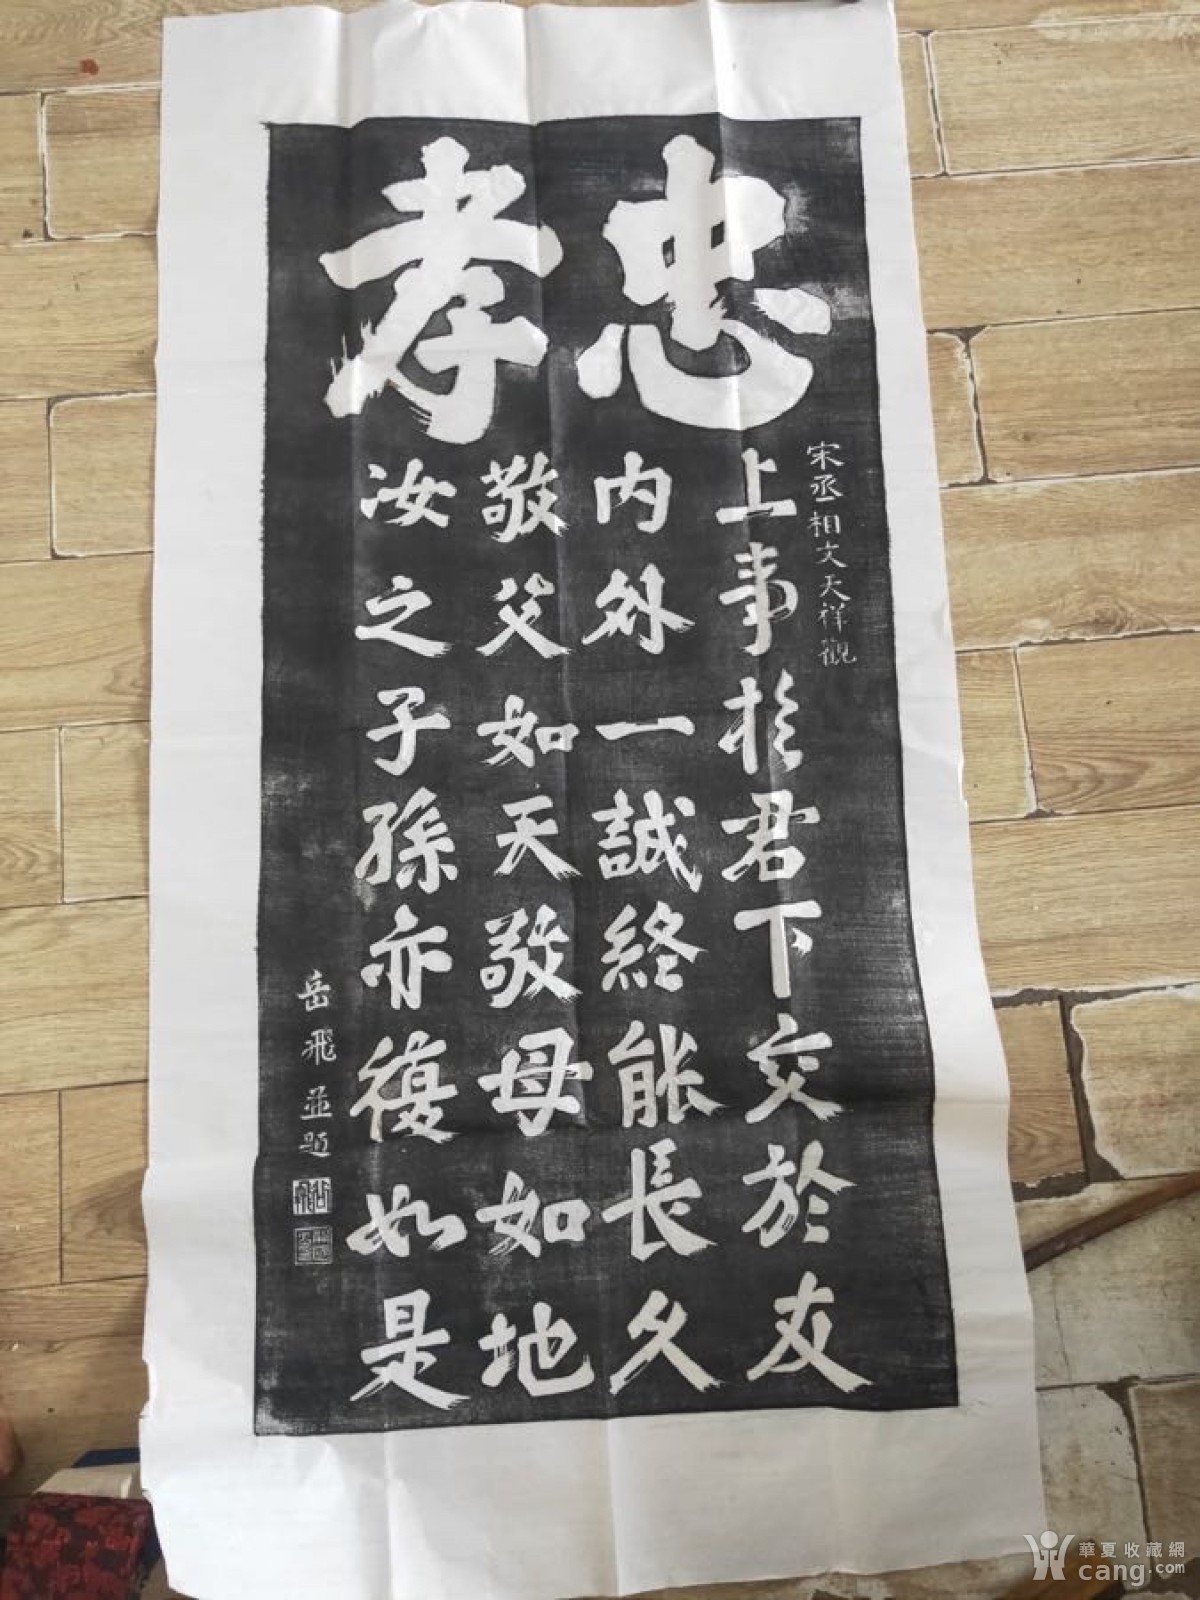 忠孝
宋丞相文天祥觀
上事於君下交於友
內外一誠終能長久
敬父如天敬母如地
汝之子孫亦復如是
岳飛並題
華夏收藏網
cang.com